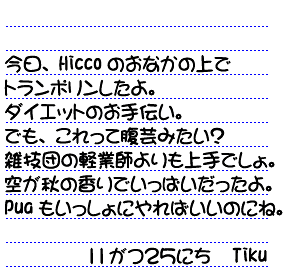 今日、Hiccoのおなかの上で
トランポリンしたよ。
ダイエットのお手伝い。
でも、これって腹芸みたい?
雑技団の軽業師よりも上手でしょ。
空が秋の香りでいっぱいだったよ。
Puaもいっしょにやればいいのにね。
11がつ25にち Tiku